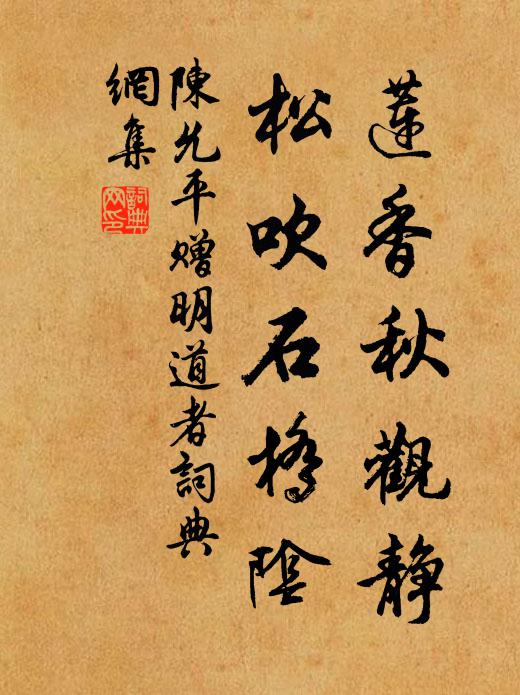 蓮香秋觀靜
松吹石橋陰
陳允平贈明道者詞典
網集
詞典網印